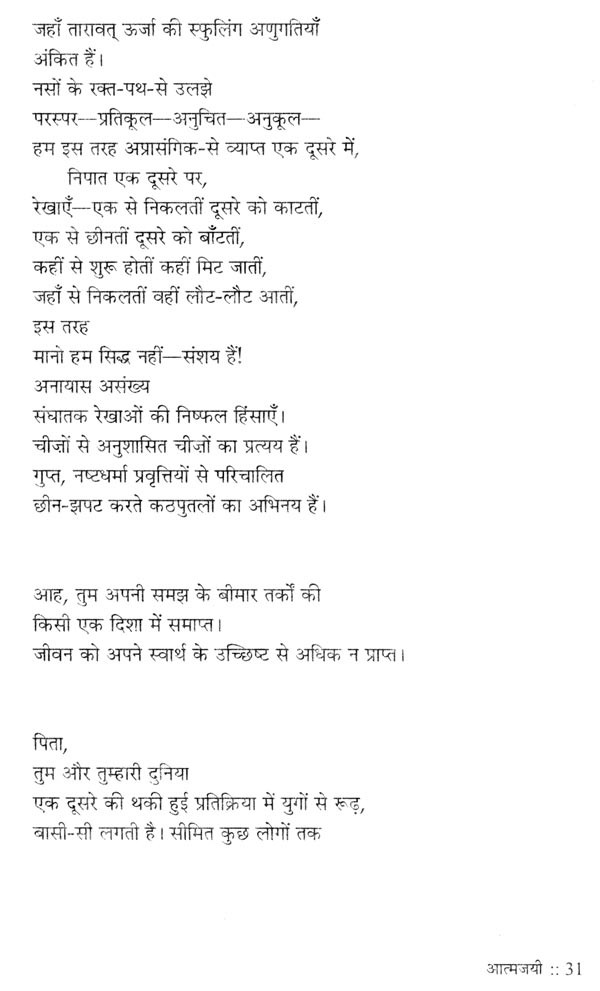 जहाँ तारावत् ऊर्जा की स्फुलिंग अणुगतियाँ
अंकित हैं।
नसों के रक्त-पथ-से उलझे
परस्पर—प्रतिकूल—अनुचित—अनुकूल—
हम इस तरह अप्रासंगिक-से व्याप्त एक दूसरे में,
निपात एक दूसरे पर,
रेखाएँ—एक से निकलतीं दूसरे को काटतीं,
एक से छीनतीं दूसरे को बाँटतीं,
कहीं से शुरू होतीं कहीं मिट जातीं,
जहाँ से निकलतीं वहीं लौट-लौट आतीं,
इस तरह
मानो हम सिद्ध नहीं—संशय हैं!
अनायास असंख्य
संघातक रेखाओं की निष्फल हिंसाएँ।
चीज़ों से अनुशासित चीज़ों का प्रत्यय हैं।
गुप्त, नष्टधर्मा प्रवृत्तियों से परिचालित
छीन-झपट करते कठपुतलों का अभिनय हैं।
आह, तुम अपनी समझ के बीमार तर्कों की
किसी एक दिशा में समाप्त।
जीवन को अपने स्वार्थ के उच्छिष्ट से अधिक न प्राप्त।
पिता,
तुम और तुम्हारी दुनिया
एक दूसरे की थकी हुई प्रतिक्रिया में युगों से रूढ़,
बासी-सी लगती है। सीमित कुछ लोगों तक
आत्मजयी :: 31